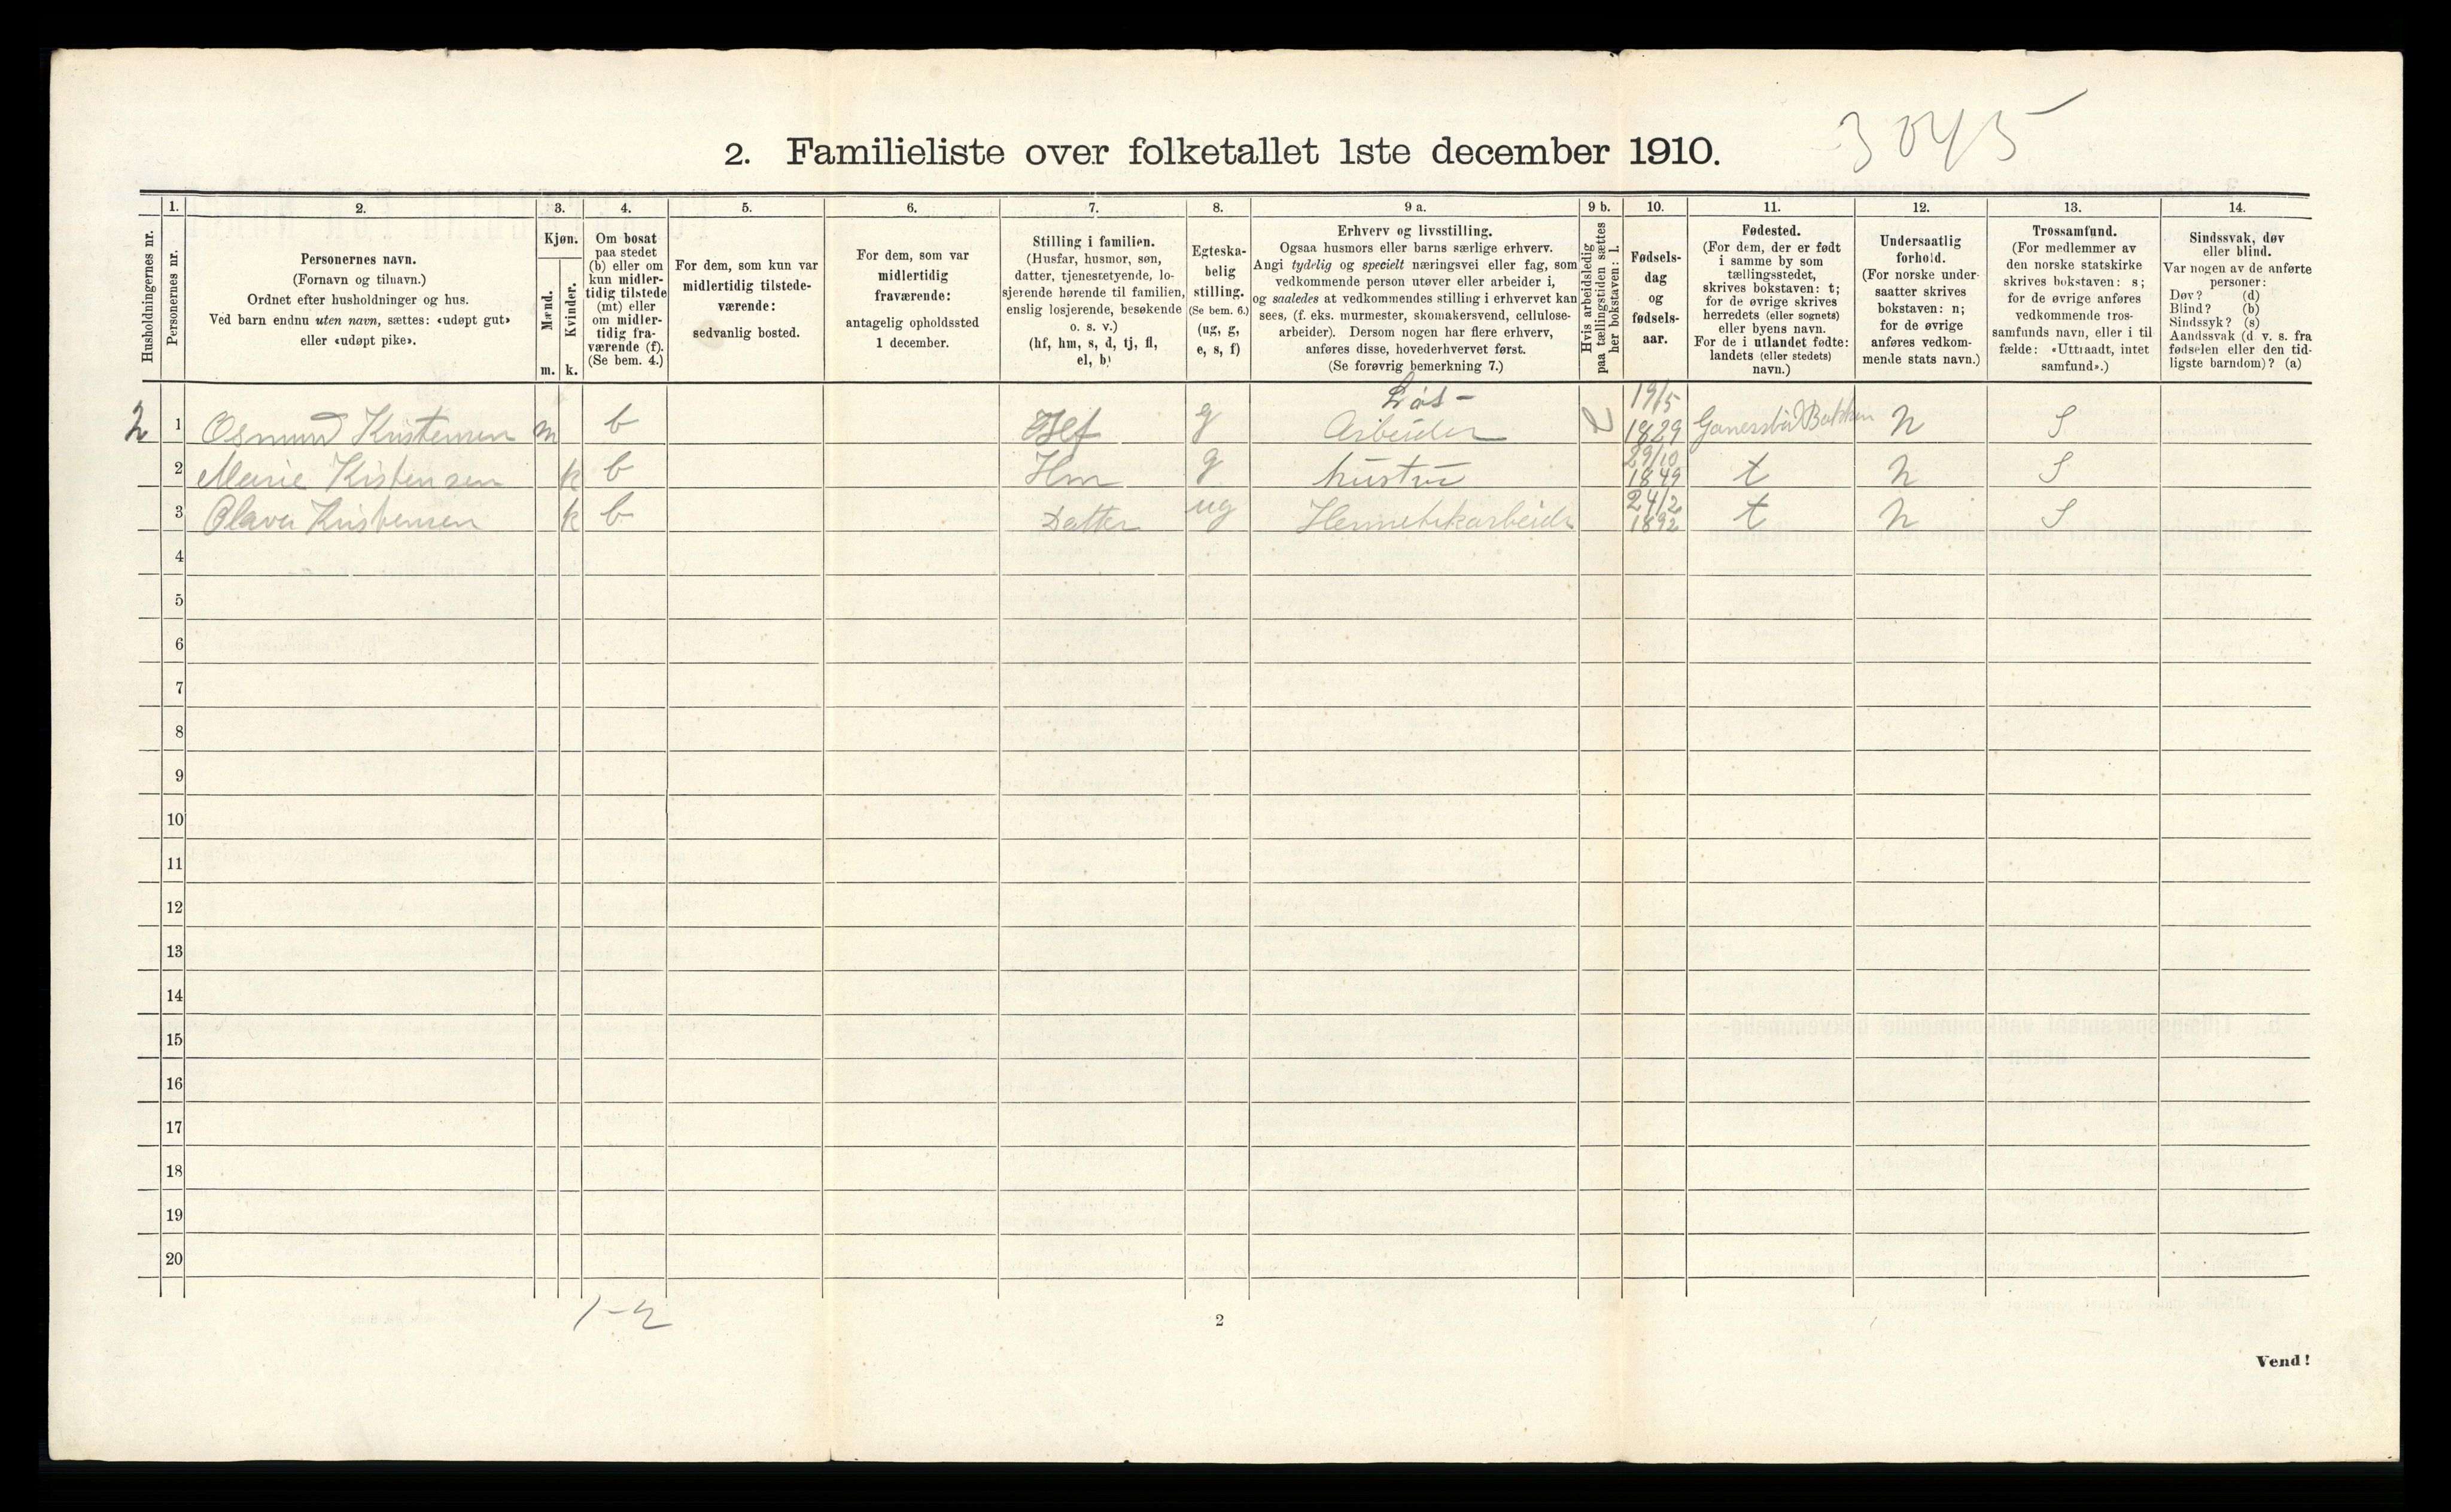 3045
2. Familieliste over folketallet 1ste december 1910.
1. 2. 3. 4. 5. 6. 7. 8. 9 a. 9 b. 10. 11. 12. 13. 14.
Husholdningernes nr.
Personernes nr.
Personernes navn.
(Fornavn og tilnavn.)
Ordnet efter husholdninger og hus.
Ved barn endnu uten navn, sættes: «udøpt gut»
eller «udøpt pike».
Kjøn.
Mænd.
Kvinder.
m. k.
Om bosat
paa stedet
(b) eller om
kun midler-
tidig tilstede
(mt) eller
om midler-
tidig fra-
værende (f).
(Se bem. 4.)
For dem, som kun var
midlertidig tilstede-
værende:
sedvanlig bosted.
For dem, som var
midlertidig
fraværende:
antagelig opholdssted
1 december.
Stilling i familien.
(Husfar, husmor, søn,
datter, tjenestetyende, lo-
sjerende hørende til familien,
enslig losjerende, besøkende
o. s. v.)
(hf, hm, s, d, tj, fl,
el, b)
Egteska-
belig
stilling.
(Se bem. 6.)
(ug, g,
e, s, f)
Erhverv og livsstilling.
Ogsaa husmors eller barns særlige erhverv.
Angi tydelig og specielt næringsvei eller fag, som
vedkommende person utøver eller arbeider i,
og saaledes at vedkommendes stilling i erhvervet kan
sees, (f. eks. murmester, skomakersvend, cellulose-
arbeider). Dersom nogen har flere erhverv,
anføres disse, hovederhvervet først.
(Se forøvrig bemerkning 7.)
Hvis arbeidsledig
paa tællingstiden sættes
her bokstaven: l.
Fødsels-
dag
og
fødsels-
aar.
Fødested.
(For dem, der er født
i samme by som
tællingsstedet,
skrives bokstaven: t;
for de øvrige skrives
herredets (eller sognets)
eller byens navn.
For de i utlandet fødte:
landets (eller stedets)
navn.)
Undersaatlig
forhold.
(For norske under-
saatter skrives
bokstaven: n;
for de øvrige
anføres vedkom-
mende stats navn.)
Trossamfund.
(For medlemmer av
den norske statskirke
skrives bokstaven: s;
for de øvrige anføres
vedkommende tros-
samfunds navn, eller i til
fælde: «Uttraadt, intet
samfund».)
Sindssvak, døv
eller blind.
Var nogen av de anførte
personer:
Døv? (d)
Blind? (b)
Sindssyk? (s)
Aandssvak (d. v. s. fra
fødselen eller den tid-
ligste barndom)? (a)
2 1 Osmund Kristensen m b Hf g Løs- Arbeider l 19/5 1829 n S
2 Marie Kristensen k b Hm g hustru 29/10 1849 t n S
3 Olava Kristensen k b Datter ug Hermetikarbeider 24/2 1892 t n S
4
5
6
7
8
9
10
11
12
13
14
15
16
17
18
19
20
1-2
2
Vend!